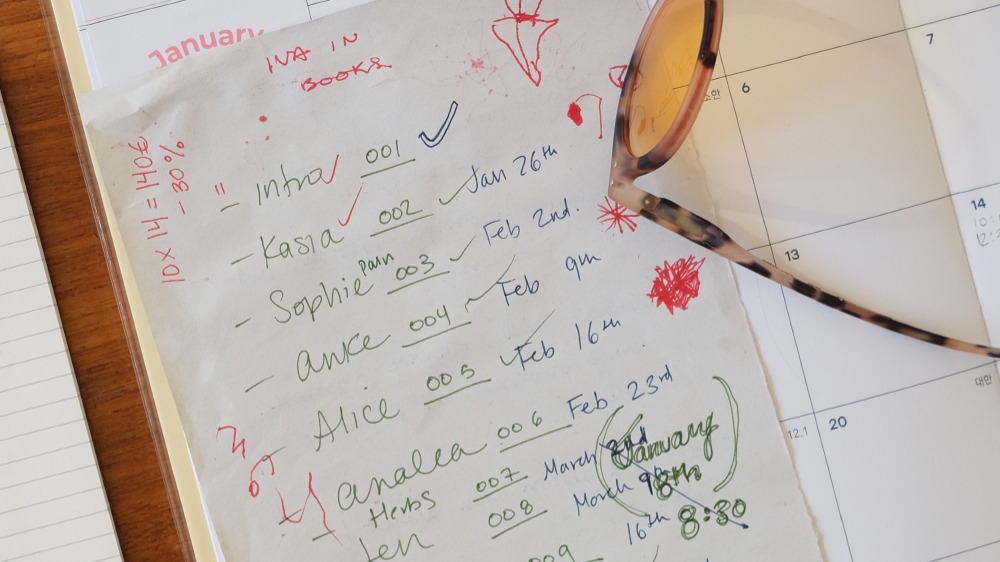 January
INA IN
BOOKS
10 x 14 = 140€
- 30%
- Intro 001
- Kasia 002 Jan 26th
- Sophie Pain 003 Feb 2nd.
- Anke 004 Feb 9th
- Alice 005 Feb 16th
- analea 006 Feb 23rd
Herbs 007 March 2nd
Jen 008 March 9th
009 16th
(January
8th
8:30
6
7
13
14
대한
12.1
20